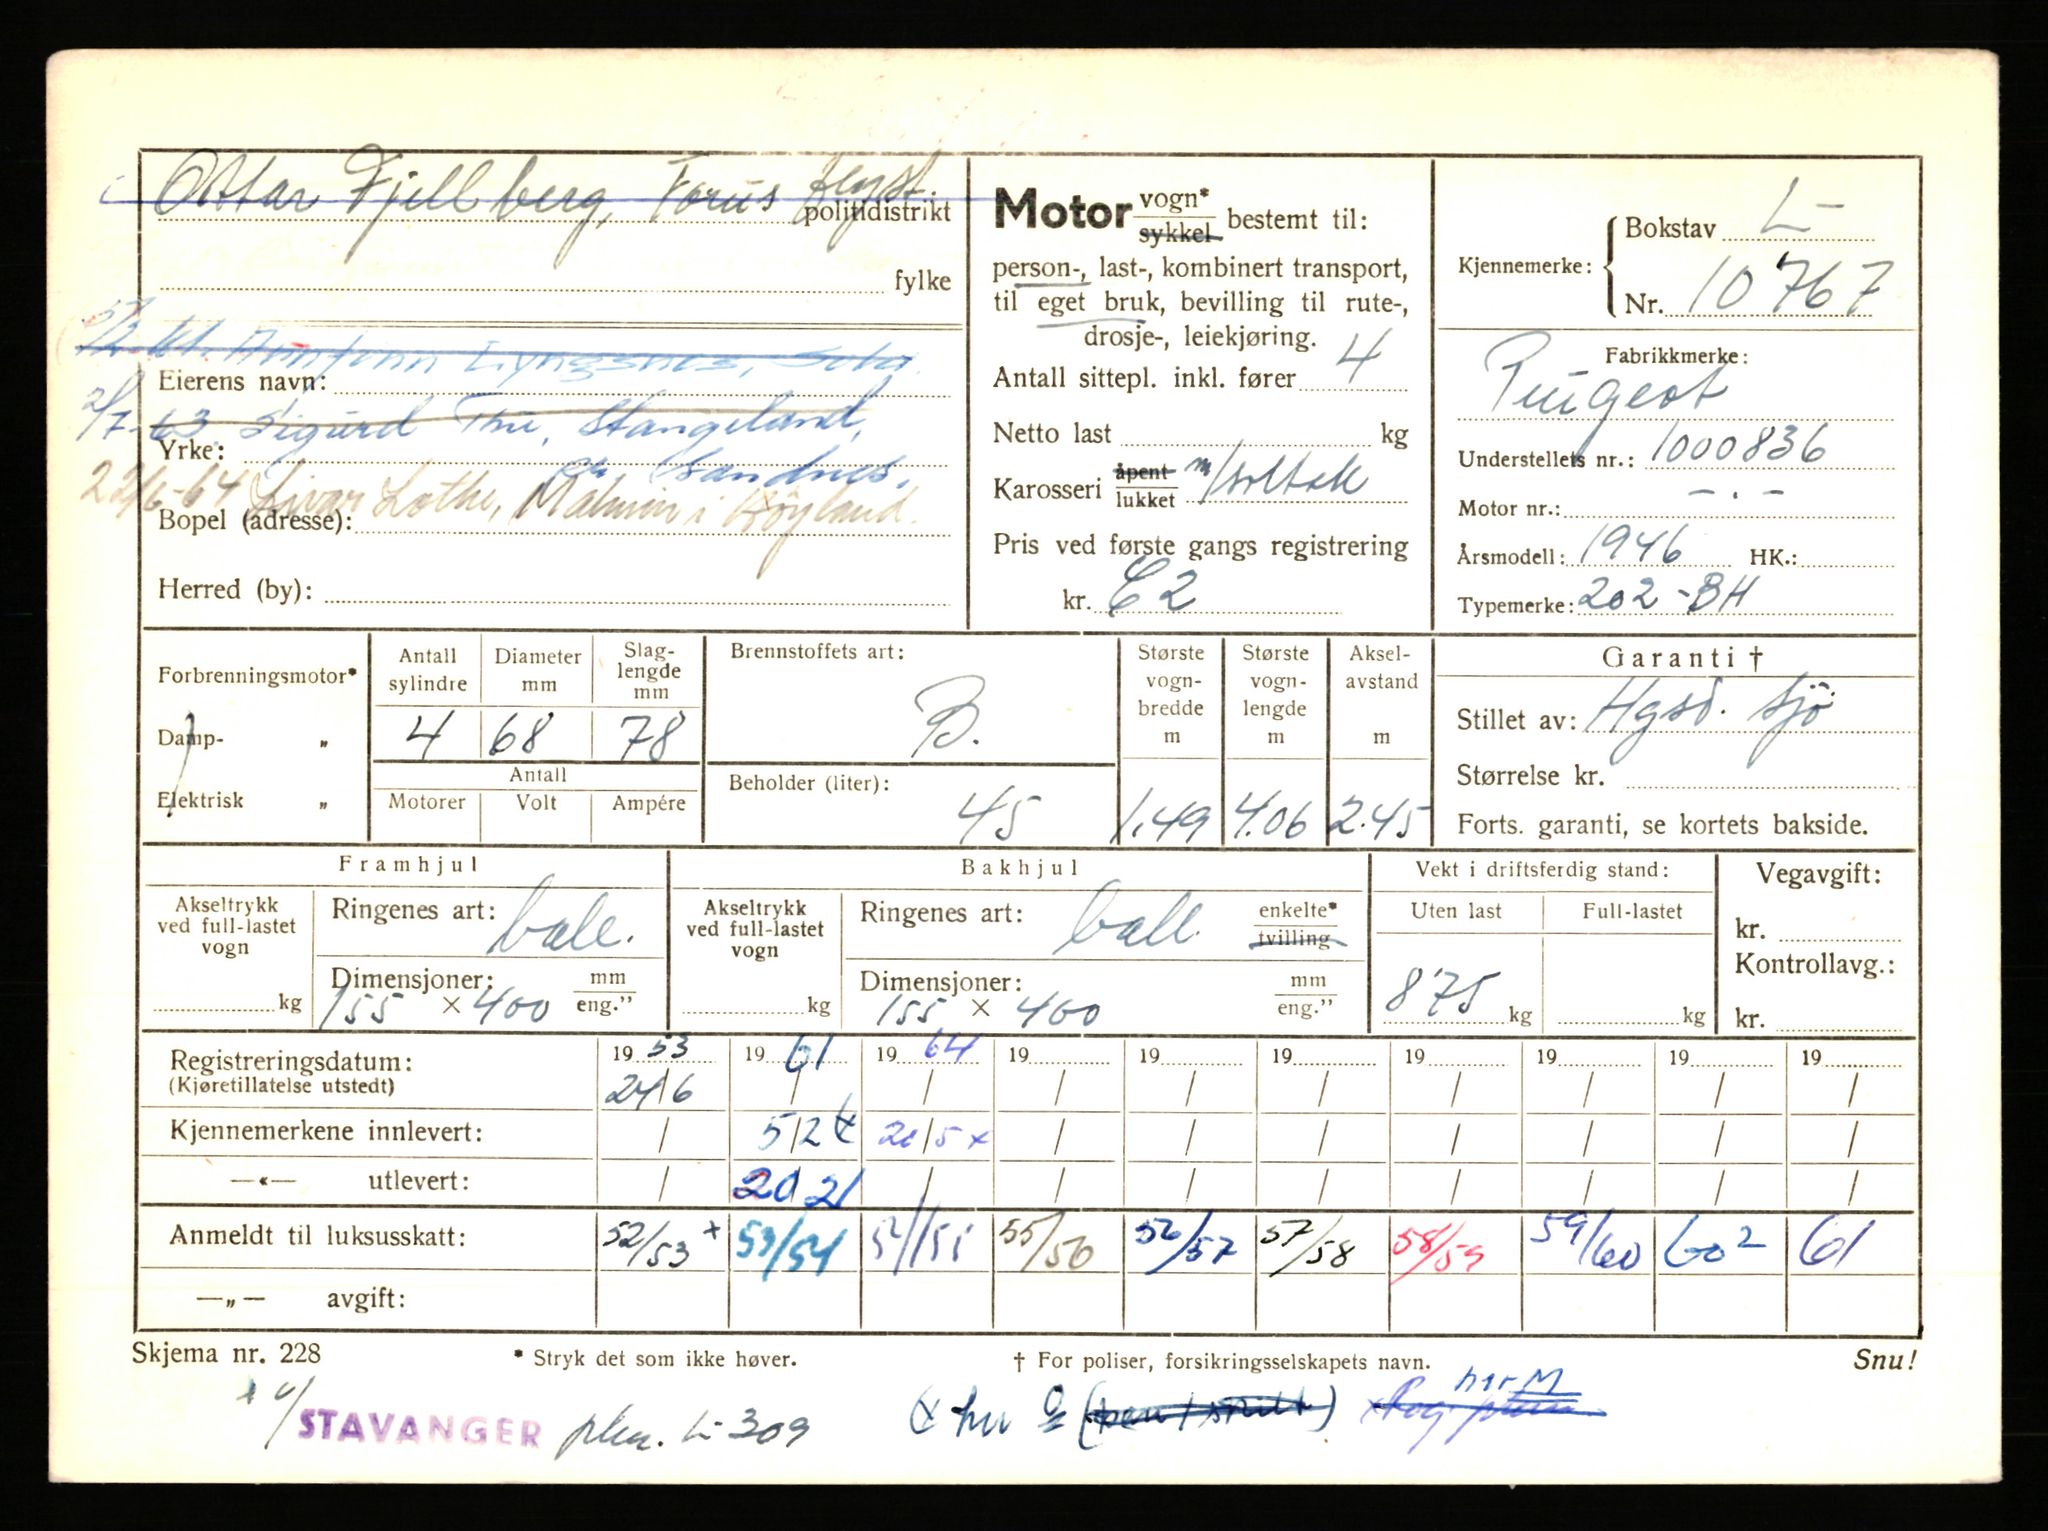 Ottar Fjellberg, Forus
politidistrikt
fylke
Lyngsnes, Sola.
Eierens navn:
2/7-63. Sigurd Thu, Stangeland,
Yrke: Sandnes.
22/6-64 Livar Lothe, Malmin i Høyland.
Bopel (adresse):
Herred (by):
Motor vogn* sykkel bestemt til:
person-, last-, kombinert transport,
til eget bruk, bevilling til rute-,
drosje-, leiekjøring.
Antall sittepl. inkl. fører 4
Netto last kg
Karosseri åpent lukket m/soltak
Pris ved første gangs registrering
kr. C2
Kjennemerke: Bokstav L-
Nr. 10767
Fabrikkmerke:
Peugeot
Understellets nr.: 1000836
Motor nr.: -.-
Årsmodell: 1946 HK.:
Typemerke: 202-BH
Forbrenningsmotor*
Damp- „
Elektrisk „
Antall sylindre Diameter mm Slaglengde mm
4 68 78
Antall
Motorer Volt Ampére
Brennstoffets art:
B.
Beholder (liter):
45
Største vognbredde m
1.49
Største vognlengde m
4.06
Akselavstand m
2.45
Garanti †
Stillet av: Hgsd. Sjö
Størrelse kr.
Forts. garanti, se kortets bakside.
Framhjul
Akseltrykk ved full-lastet vogn
kg
Ringenes art: ball.
Dimensjoner: mm
155 × 400 eng."
Bakhjul
Akseltrykk ved full-lastet vogn
kg
Ringenes art: ball. enkelte* tvilling
Dimensjoner: mm
155 × 400 eng."
Vekt i driftsferdig stand:
Uten last Full-lastet
875 kg kg
Vegavgift:
kr.
Kontrollavg.:
kr.
Registreringsdatum: 19 53 19 61 19 64 19 19 19 19 19 19 19
(Kjøretillatelse utstedt) 24/6 / / / / / / / / /
Kjennemerkene innlevert: / 5/2 20/5 x / / / / / / /
—«— utlevert: / 20/2 / / / / / / / /
Anmeldt til luksusskatt: 52/53 x 53/54 54/55 55/56 56/57 57/58 58/59 59/60 60 2 61
—„— avgift:
Skjema nr. 228 * Stryk det som ikke høver. † For poliser, forsikringsselskapets navn. Snu!
STAVANGER L-309